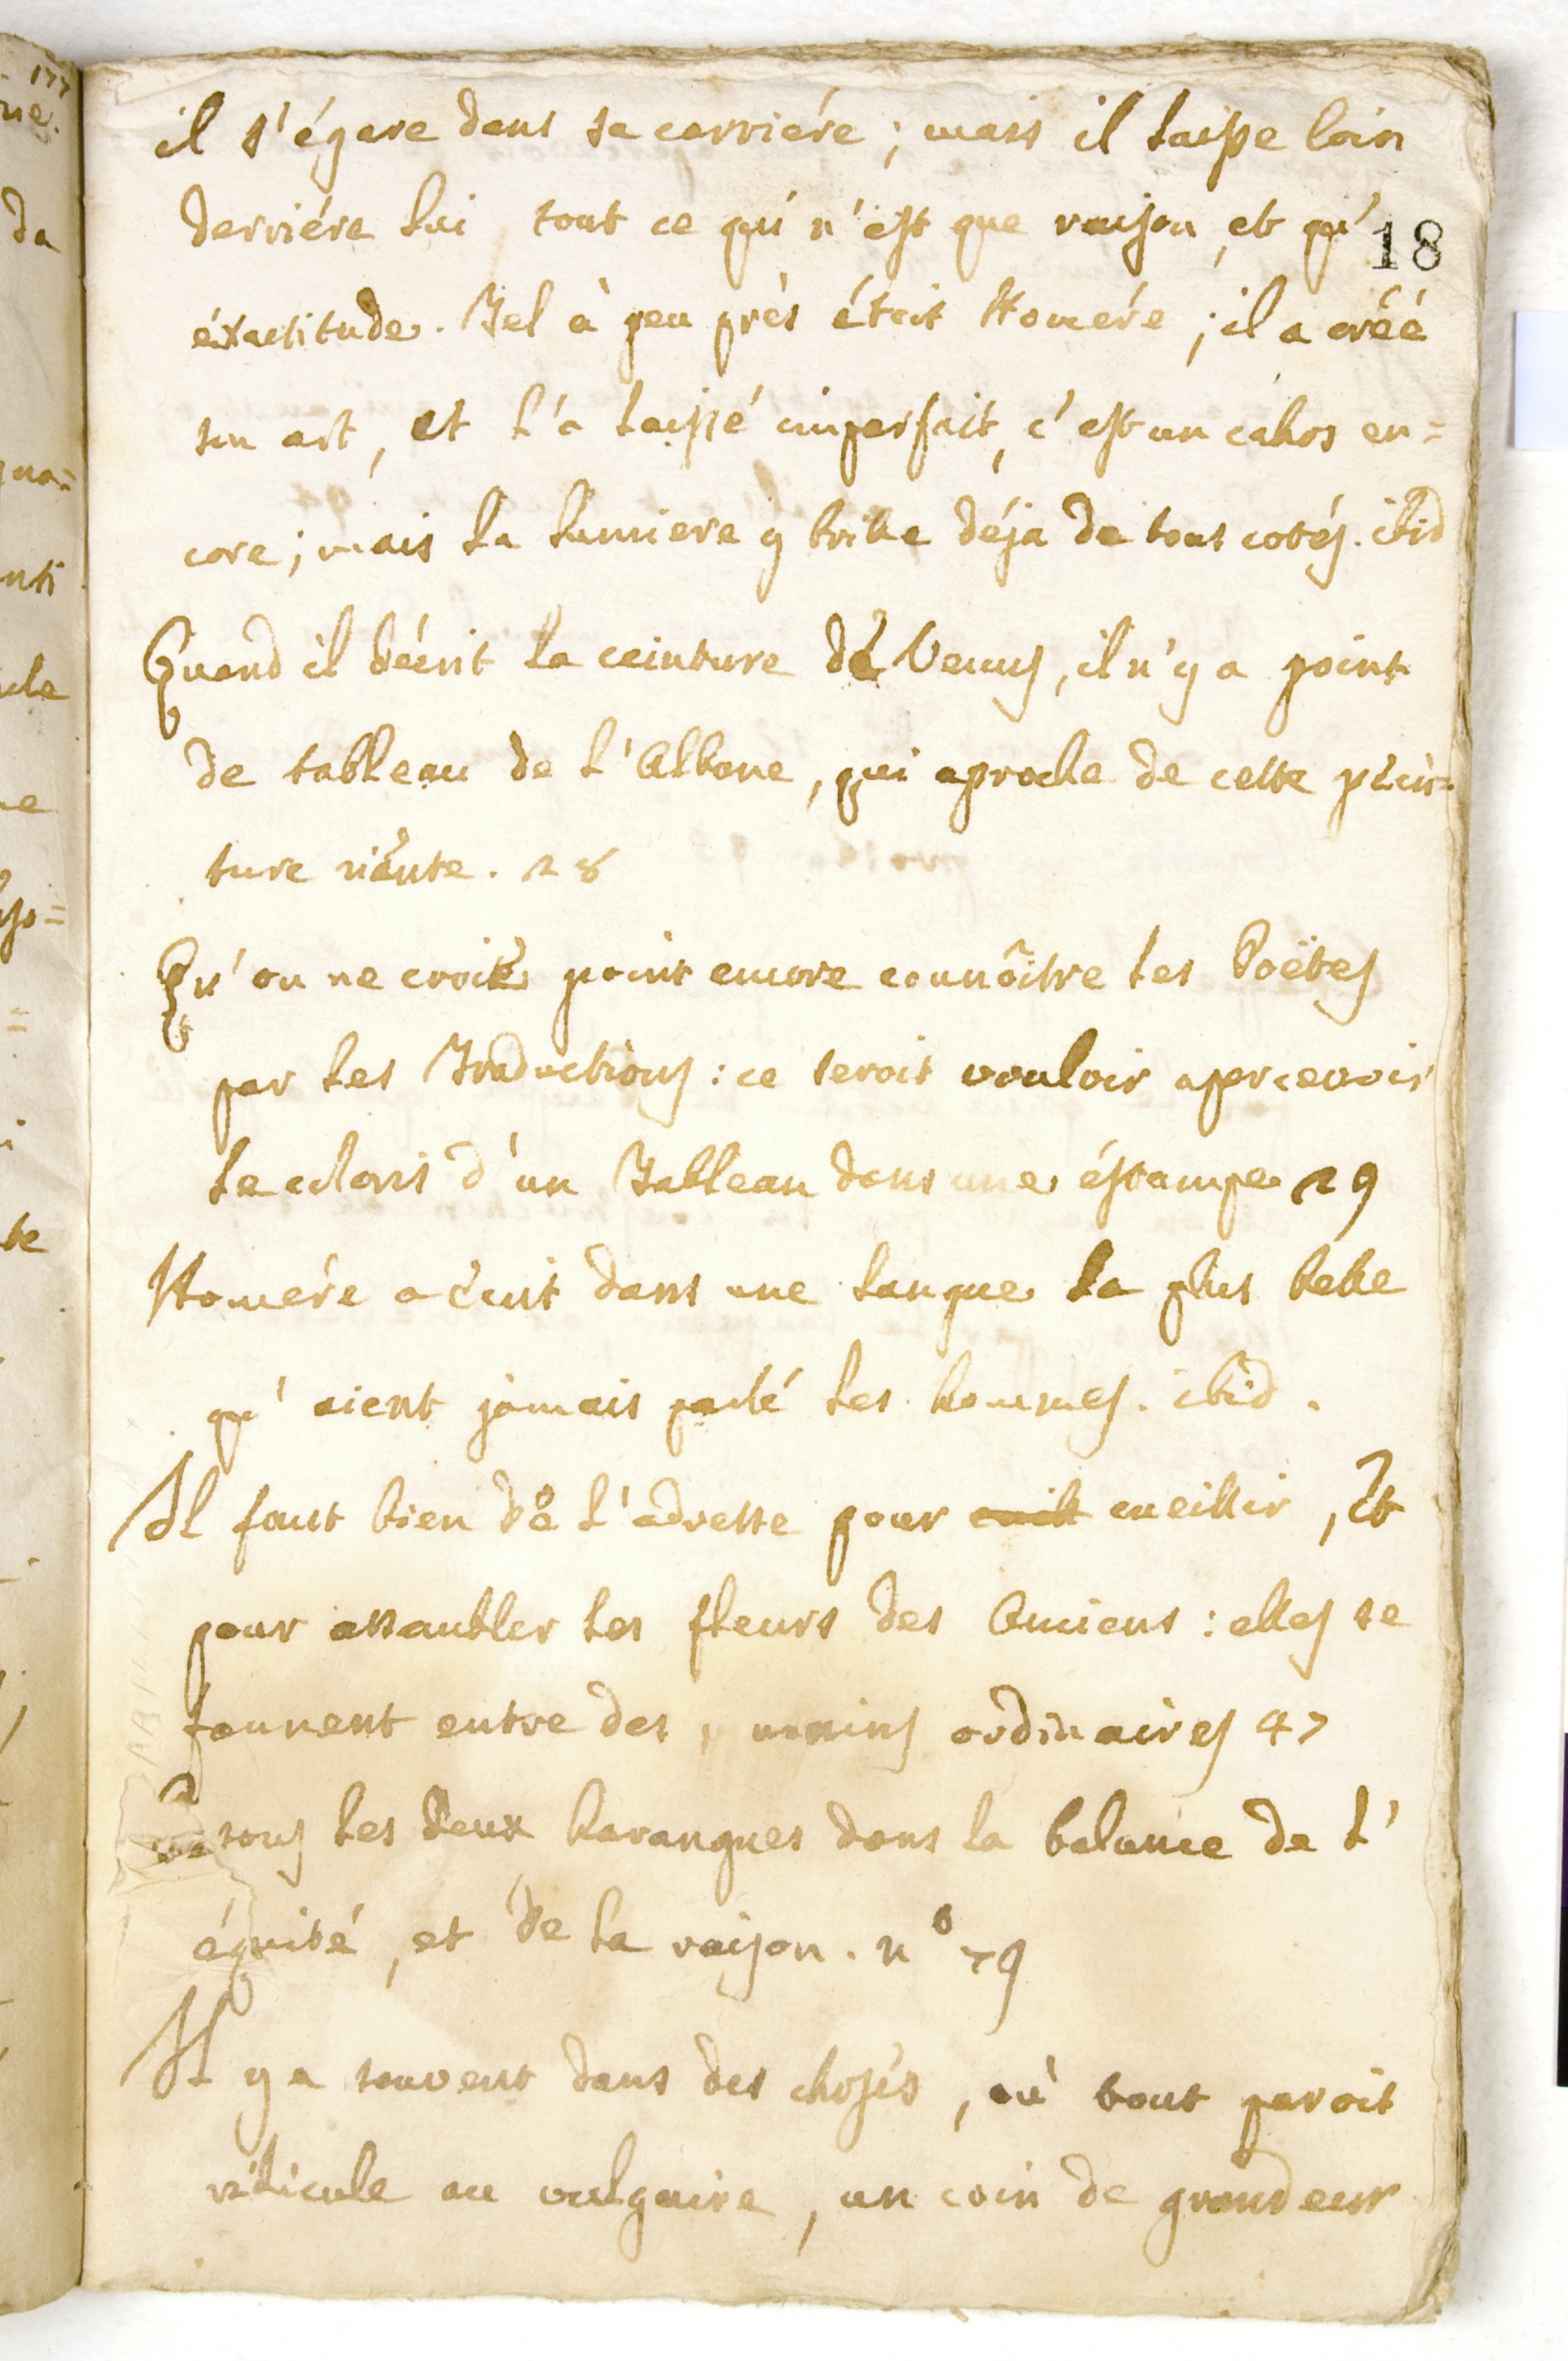 il s'égare dans sa carriére ; mais il laisse loin
derriére lui tout ce qui n'est que raison, et qu'
18
éxactitude. Tel à peu près étoit Homére ; il a créé
son art, et l'a laissé imparfait, c'est un cahos en=
core ; mais la lumiere y brille déja de tous cotés. ibid
Quand il décrit la ceinture de Venus, il n'y a point
de tableau de l'Albane, qui aproche de cette pein=
ture riante. 28
Qu'on ne croie point encore connôitre les Poëtes
par les Traductions : ce seroit vouloir apercevoir
le coloris d'un Tableau dans une éstampe 29
Homére a écrit dans une langue la plus belle
qu'aient jamais parlé les hommes. ibid.
Il faut bien de l'adresse pour cueillir, Et
pour assambler les fleurs des Anciens : elles se
fannent entre des mains ordinaires 47
les deux harangues dans la balance de l'
équité, et de la raison. n° 79
Il y a souvent dans des choses, où tout paroit
ridicule ou vulgaire, un coin de grandeur